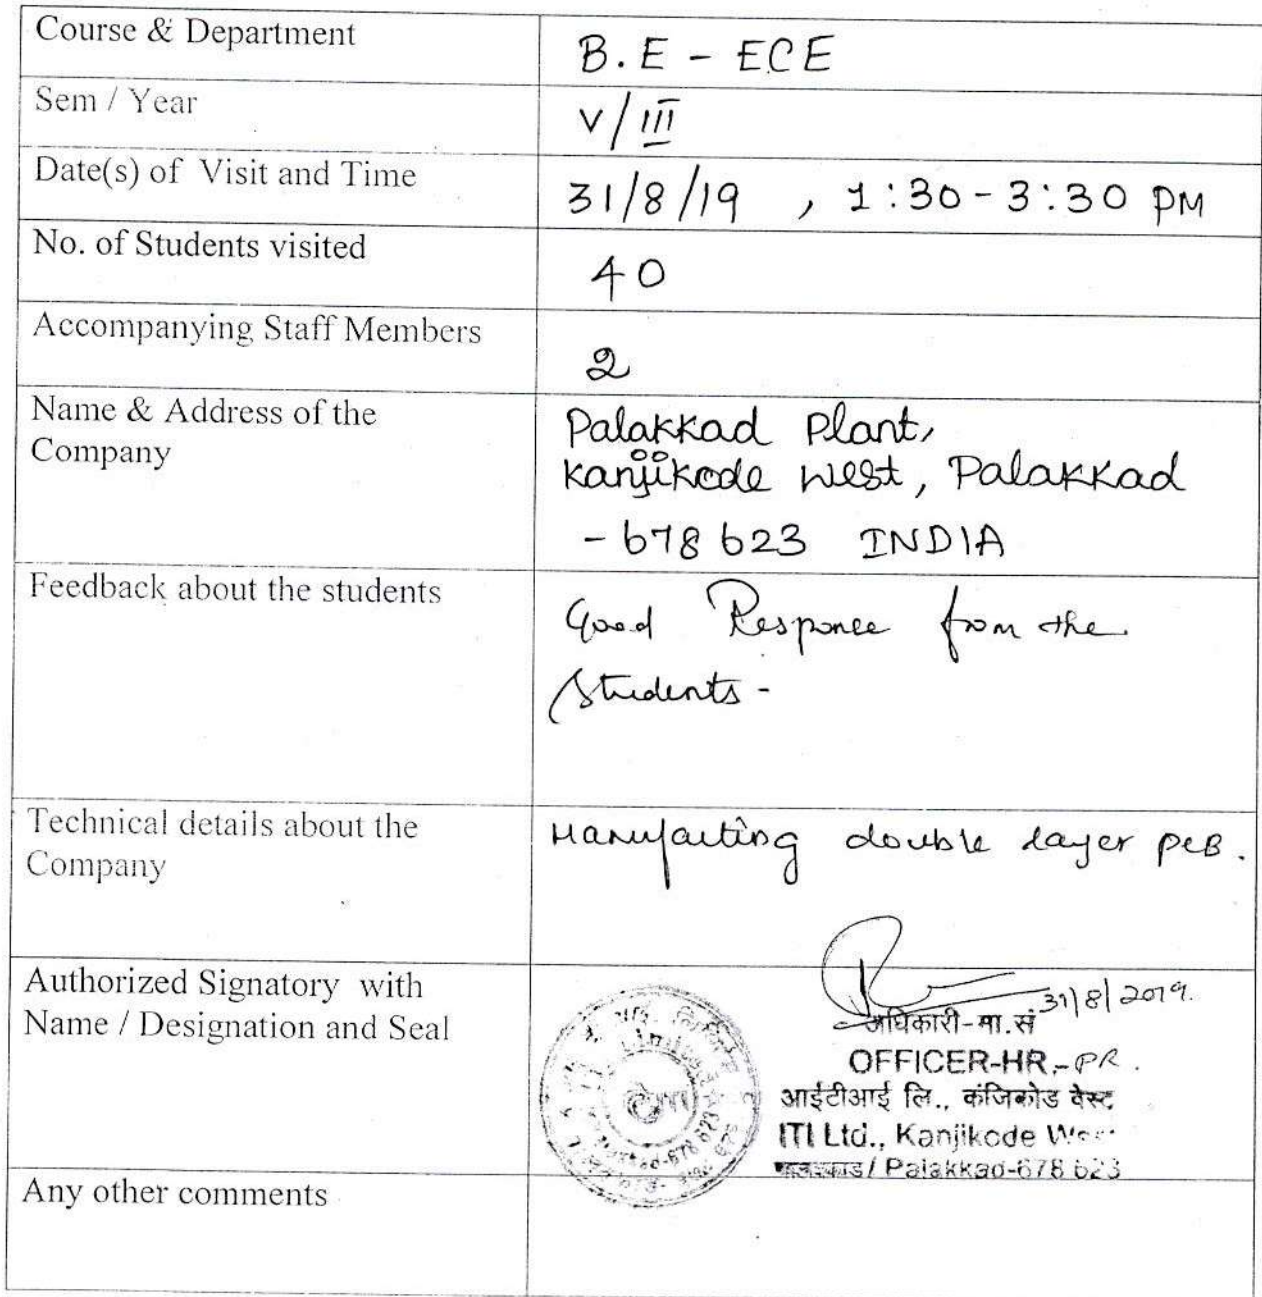 Course & Department
B.E - ECE
Sem / Year
V/III
Date(s) of Visit and Time
31/8/19 , 1:30-3:30 PM
No. of Students visited
40
Accompanying Staff Members
2
Name & Address of the
Company
Palakkad Plant,
Kanjikode West, Palakkad
- 678 623 INDIA
Feedback about the students
Good Responce from the
Students-
Technical details about the
Company
Manufauting double layer PCB.
Authorized Signatory with
Name / Designation and Seal
31/8/2019.
अधिकारी-मा.सं
OFFICER-HR,-PR.
आईटीआई लि., कंजिकोड वेस्ट
ITI Ltd., Kanjikode West
/ Palakkad-678 623
Limited
Any other comments